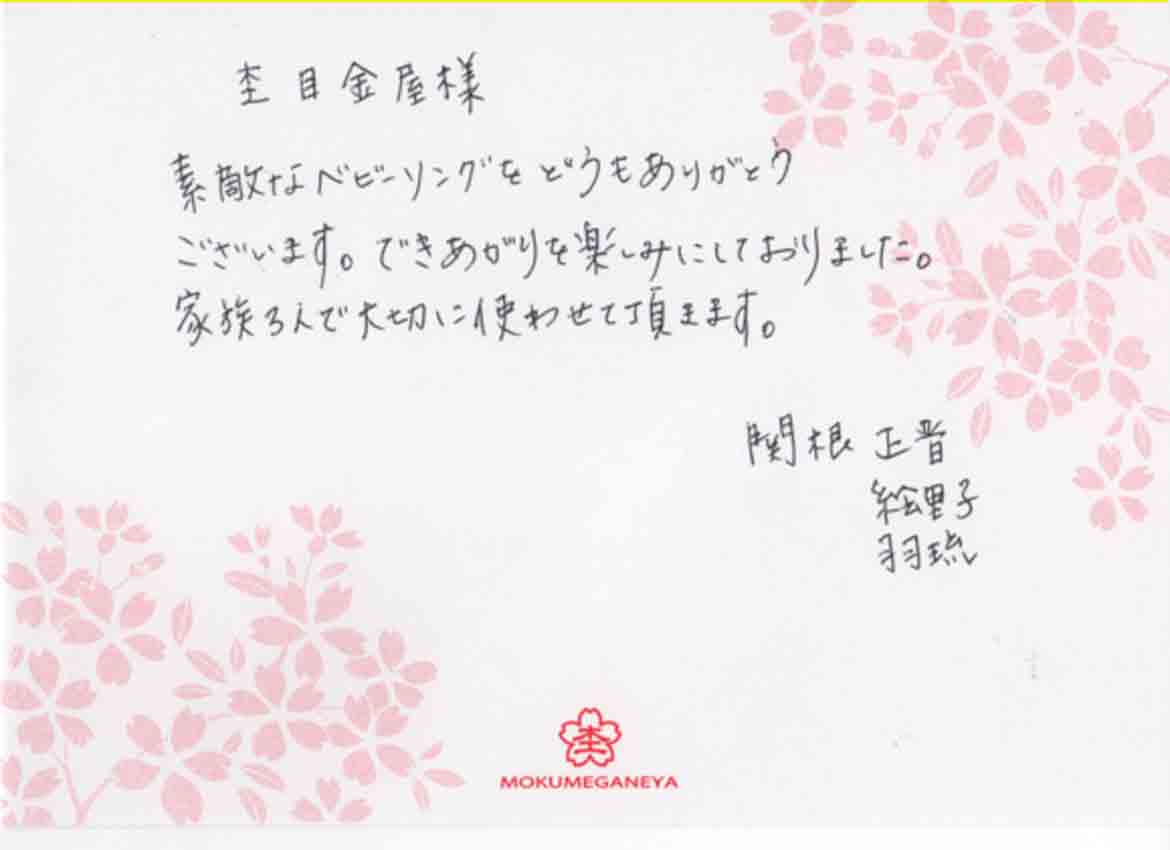 杢目金屋様
素敵なベビーリングをどうもありがとう
ございます。できあがりを楽しみにしておりました。
家族3人で大切に使わせて頂きます。
関根 正晋
絵里子
羽琉
杢
MOKUMEGANEYA